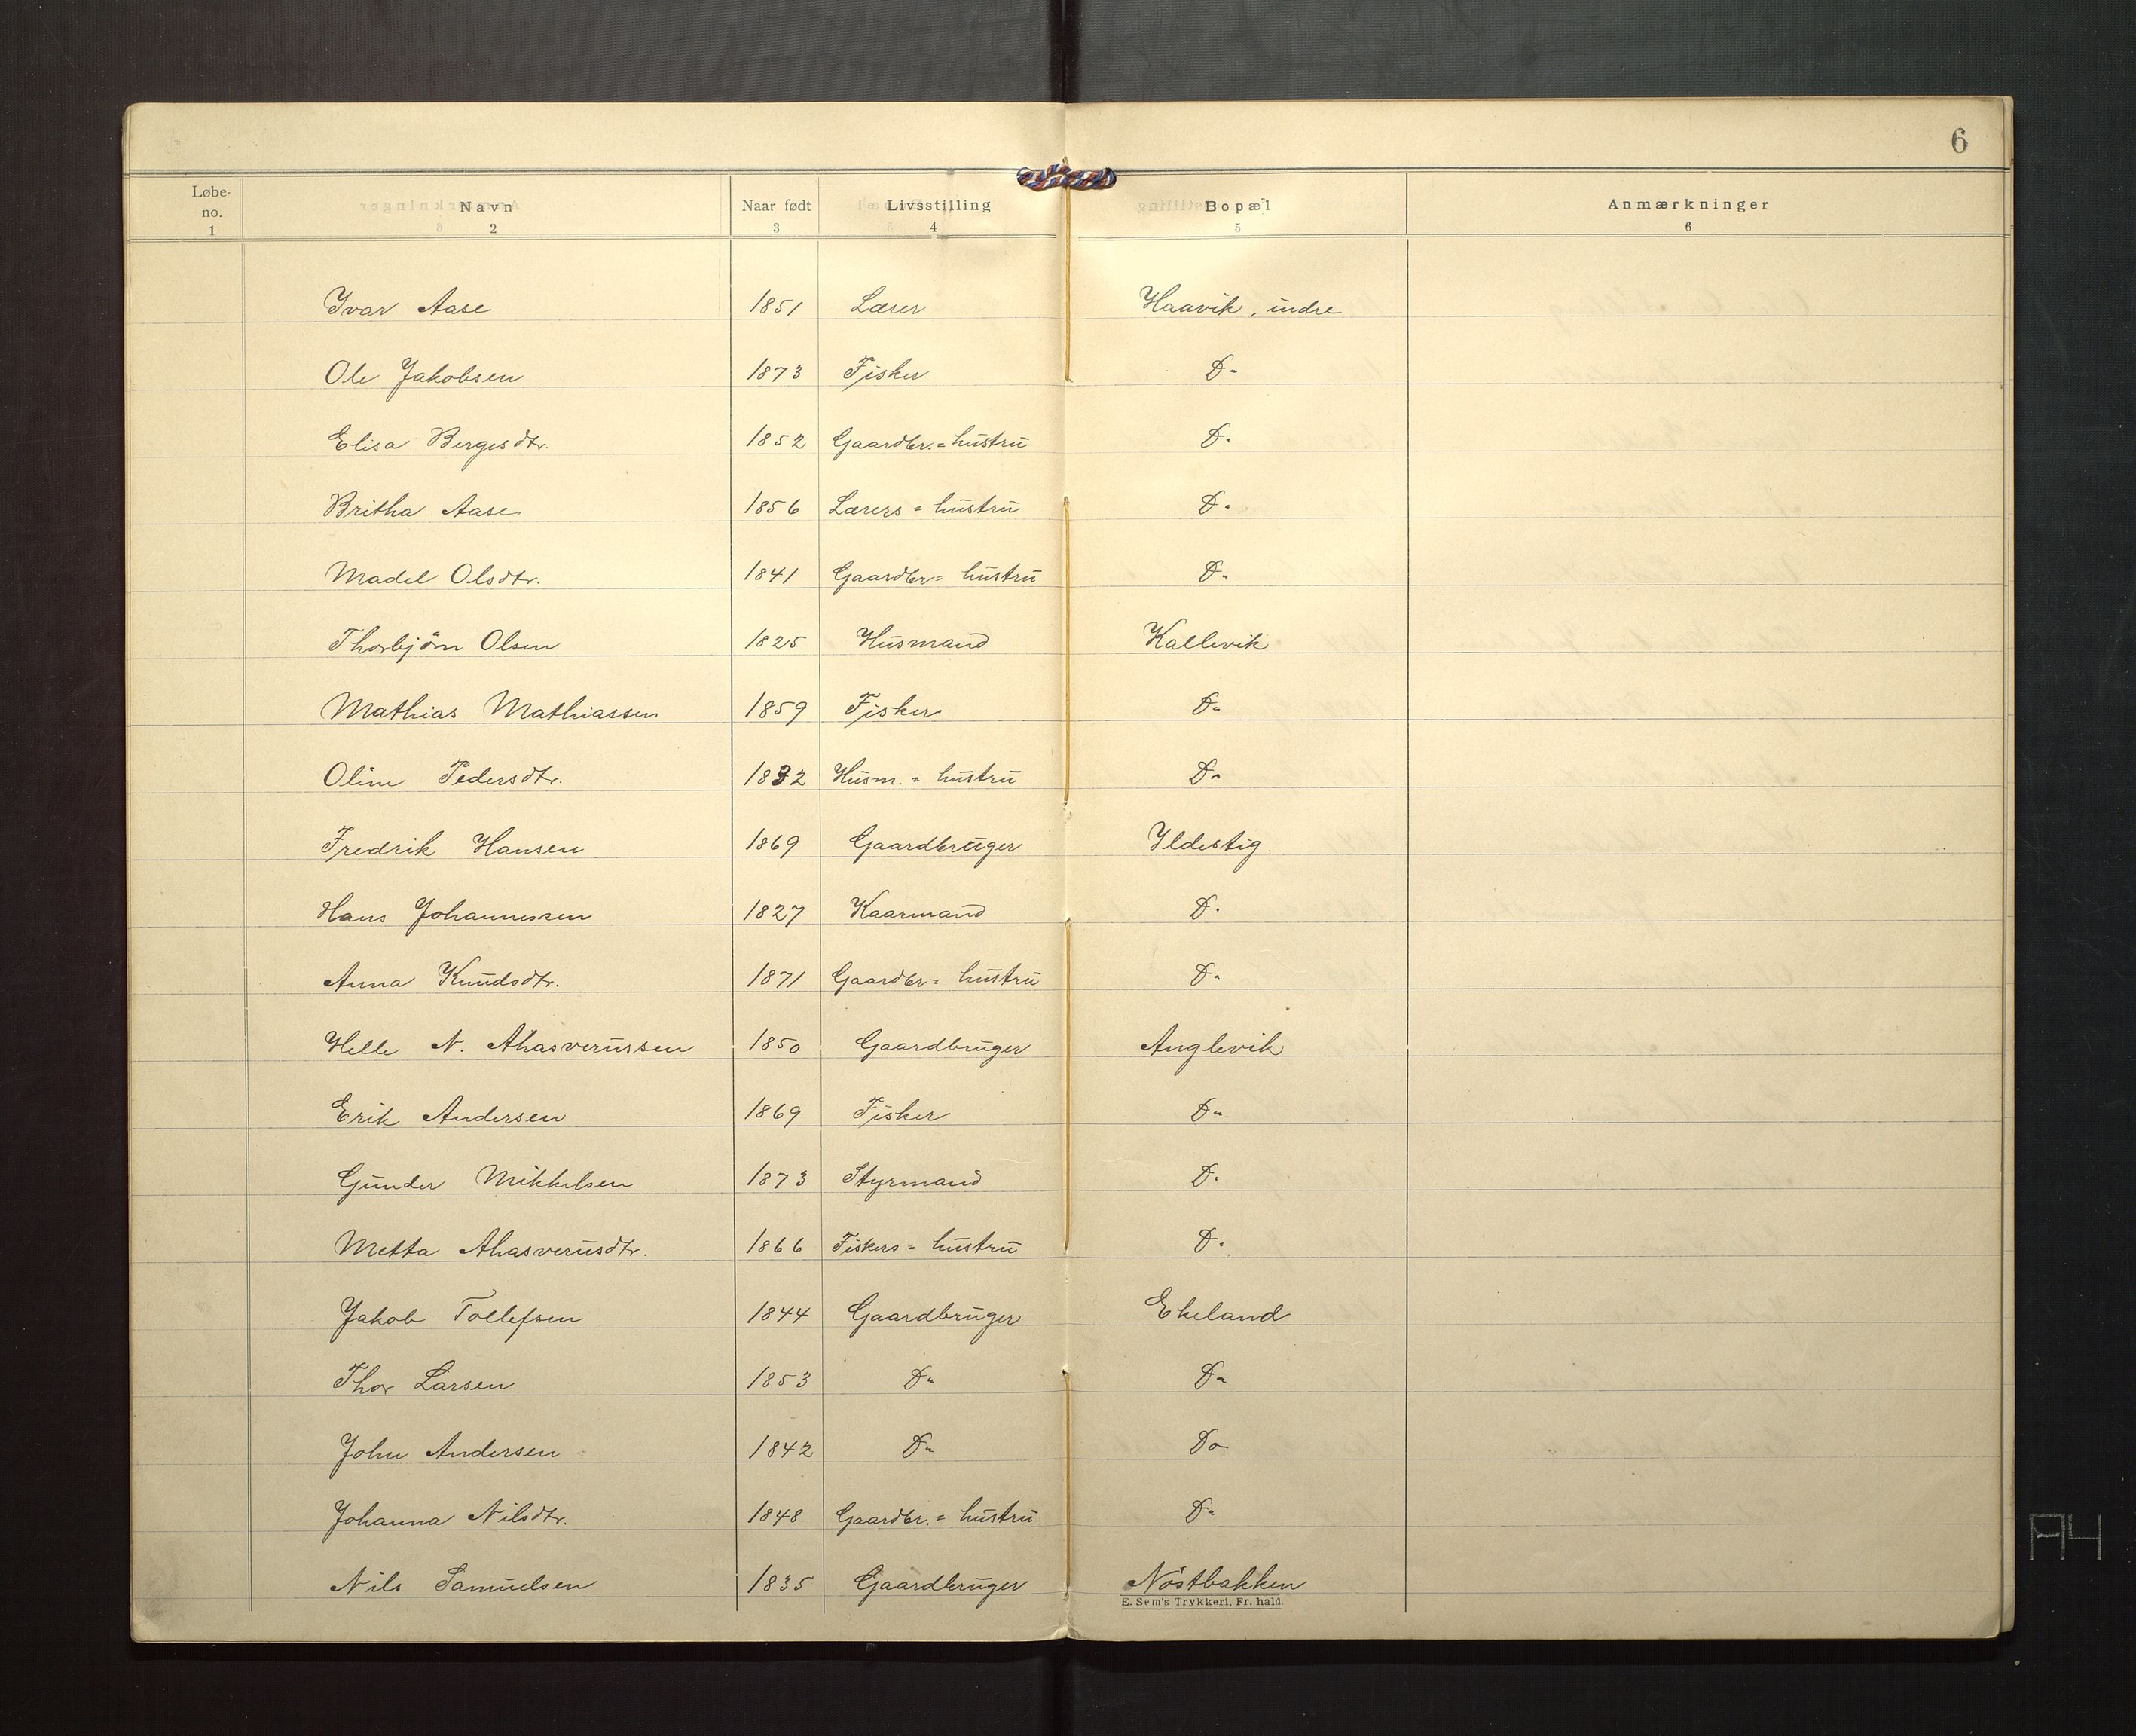 6
Løbe-no. Navn Naar født Livsstilling Bopæl Anmærkninger
1 2 3 4 5 6
Ivar Aase 1851 Lærer Haavik, indre
Ole Jakobsen 1873 Fisker Do
Elisa Bergesdtr. 1852 Gaardbr.=hustru Do
Britha Aase 1856 Lærers=hustru Do
Madel Olsdtr. 1841 Gaardbr=hustru Do
Thorbjörn Olsen 1825 Husmand Kallevik
Mathias Mathiassen 1859 Fisker Do
Oline Pedersdtr. 1832 Husm.=hustru Do
Fredrik Hansen 1869 Gaardbruger Ildestig
Hans Johannessen 1827 Kaarmand Do
Anna Knudsdtr. 1871 Gaardbr=hustru Do
Helle N. Ahasverussen 1850 Gaardbruger Anglevik
Erik Andersen 1869 Fisker Do
Gunder Mikkelsen 1873 Styrmand Do
Metta Ahasverusdtr. 1866 Fiskers=hustru Do
Jakob Tollefsen 1844 Gaardbruger Ekeland
Thor Larsen 1853 Do Do
John Andersen 1842 Do Do
Johanna Nilsdtr. 1848 Gaardbr.=hustru Do
Nils Samuelsen 1835 Gaardbruger Nöstbakken
E. Sem's Trykkeri, Fr. hald.
A4